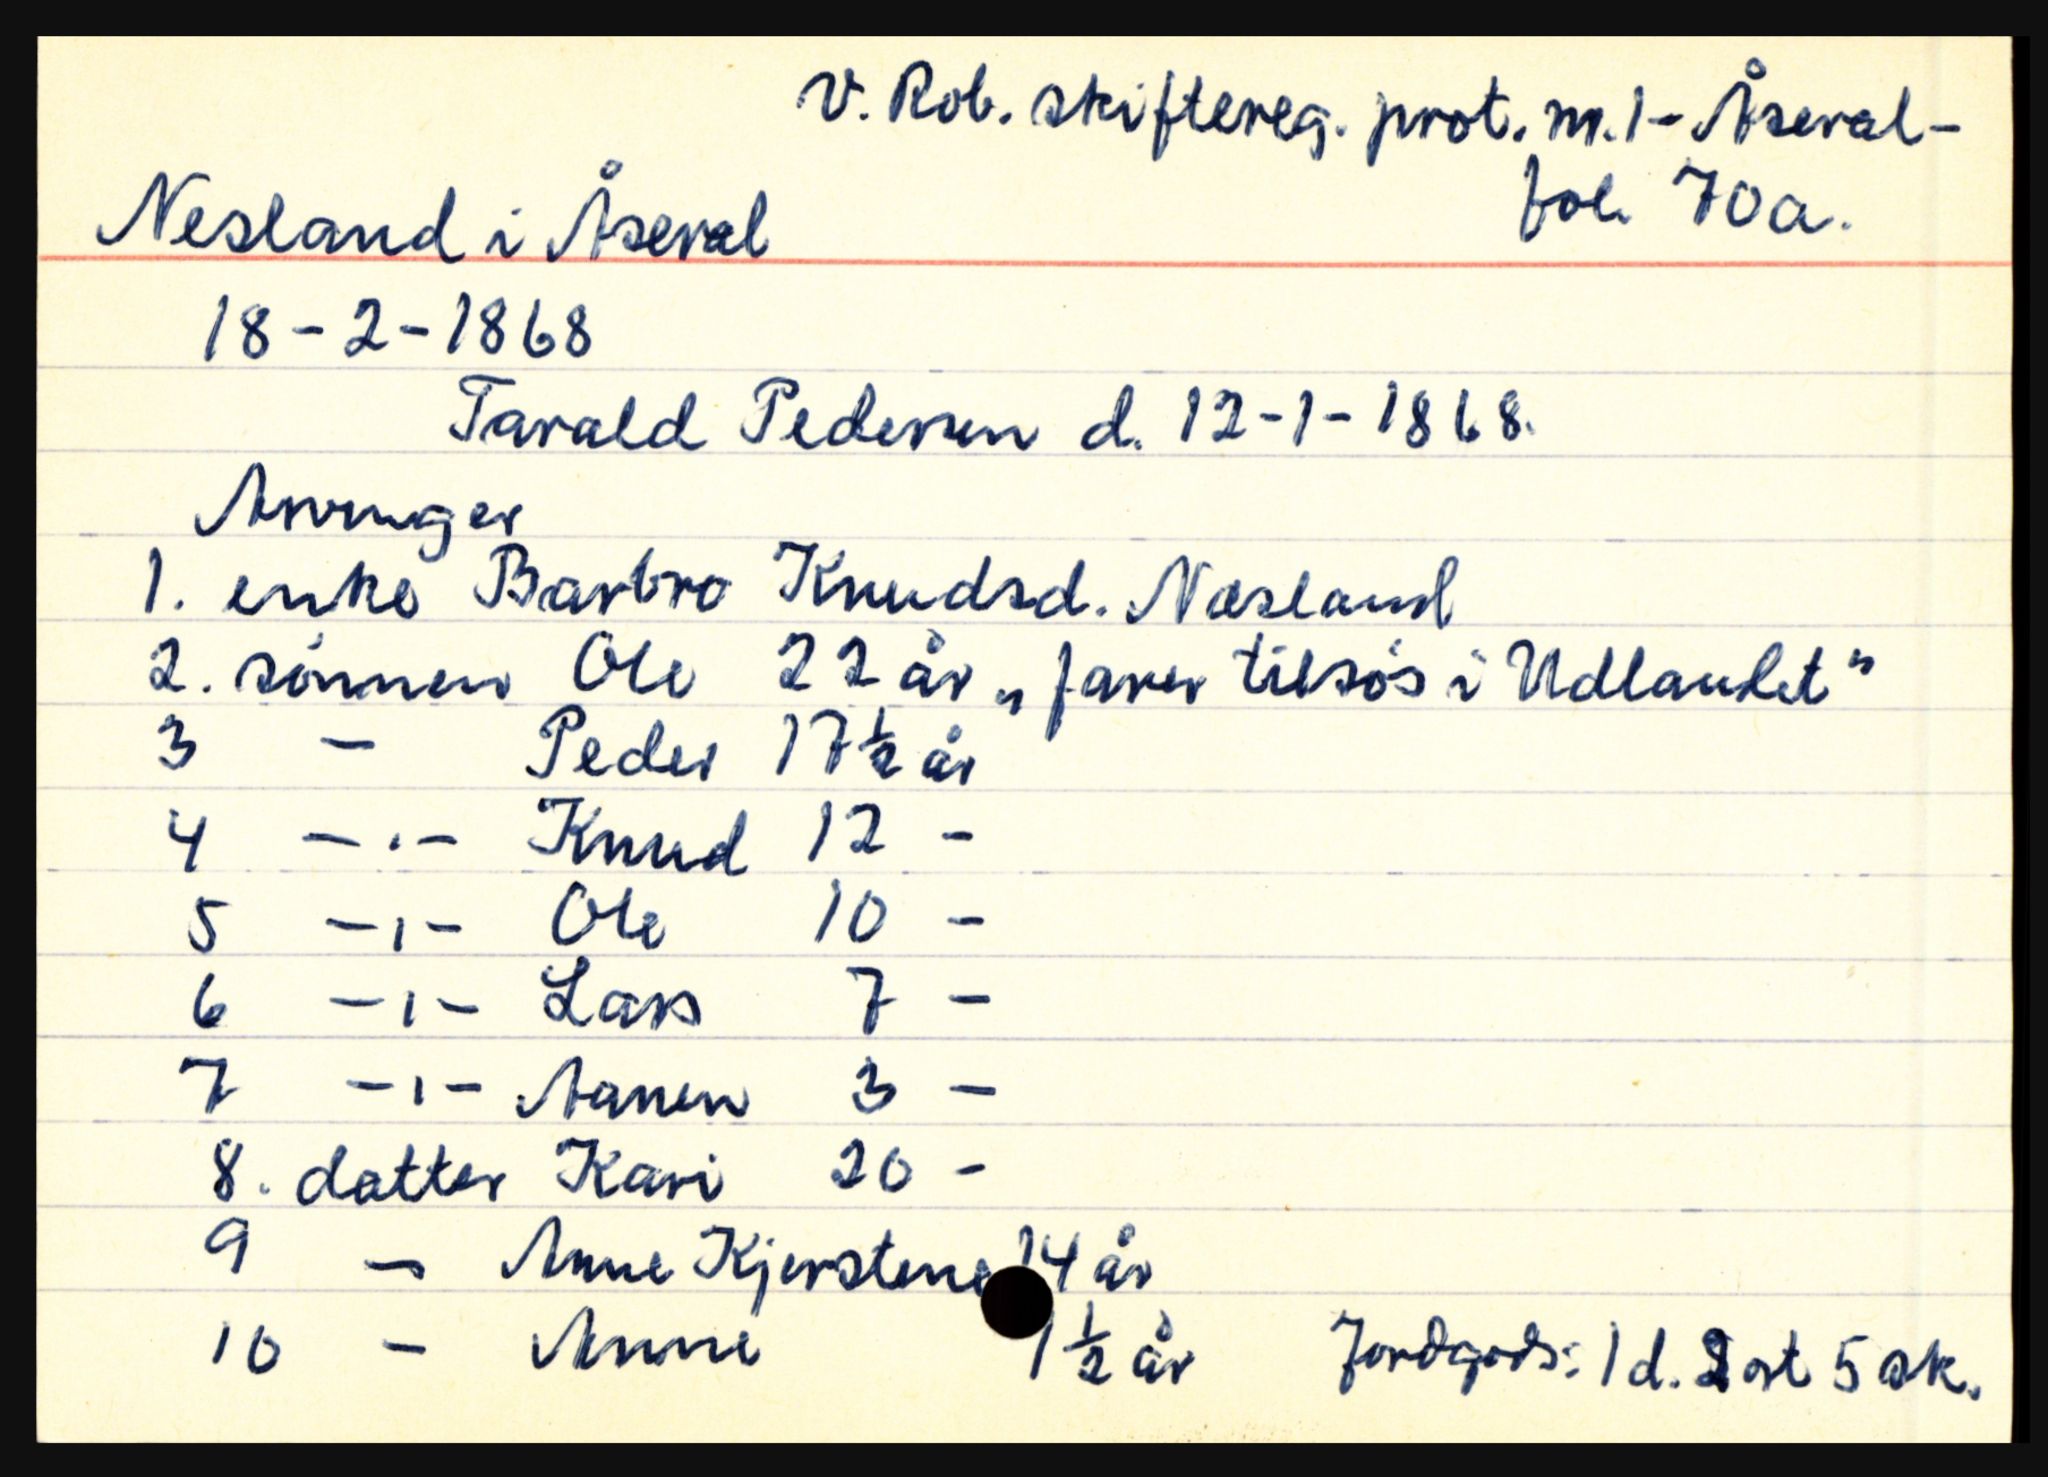 V. Rob. skiftereg. prot. nr. 1 - Åseral -
fol. 70a.
Nesland i Åseral
18-2-1868
Tarald Pedersen d. 12-1-1868.
Arvinger
1. enke Barbro Knudsd. Næsland
2. sønnen Ole 22 år „farer tilsøs i Udlandet"
3 - Peder 17 1/2 år
4 -.- Knud 12 -
5 -ı- Ole 10 -
6 -ı- Lars 7 -
7 -ı- Aanen 3 -
8. datter Kari 20 -
9 - Anne Kjerstene 14 år
10 - Anne 1 1/2 år Jordgods: 1 d. 2 ort 5 sk.